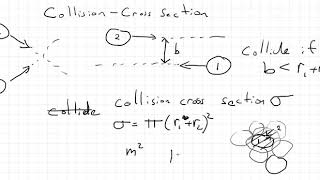 Collision-Cross section
2
b
1
collide if
b < r₁ +
collide collision cross section σ
σ = π(r₁+r₂)²
m²